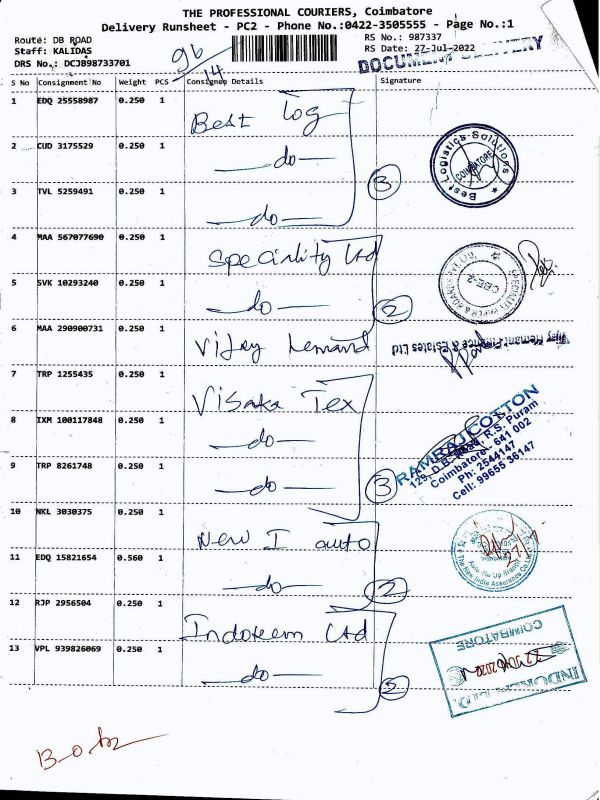 THE PROFESSIONAL COURIERS, Coimbatore
Delivery Runsheet - PC2 - Phone No.:0422-3505555 - Page No.:1
Route: DB ROAD
Staff: KALIDAS
DRS No.: DCJB98733701
96/14
RS No.: 987337
RS Date: 27-Jul-2022
DOCUMENT DELIVERY
S No Consignment No Weight PCS Consignee Details Signature
1 EDQ 25558987 0.250 1 Best log
2 CUD 3175529 0.250 1 —do—
3 TVL 5259491 0.250 1 —do—
3
Best Logistics Solutions
COIMBATORE
4 MAA 567077690 0.250 1 Speciality Ltd
5 SVK 10293240 0.250 1 —do—
2
CBE-2
6 MAA 290900731 0.250 1 Vijay Hemand
Vijay Hemant Finance & Estates Ltd
7 TRP 1255435 0.250 1 Visaka Tex
8 IXM 100117848 0.250 1 —do—
9 TRP 8261748 0.250 1 —do—
3
RAMRAJ COTTON
129, D.B. Road, R.S. Puram
Coimbatore - 641 002
Ph: 2544147
Cell: 99655 36147
10 NKL 3030375 0.250 1 New I auto
11 EDQ 15821654 0.560 1 —do—
2
The New India Assurance Co. Ltd.
12 RJP 2956504 0.250 1 Indoteem Ltd
13 VPL 939826069 0.250 1 —do—
2
COIMBATORE